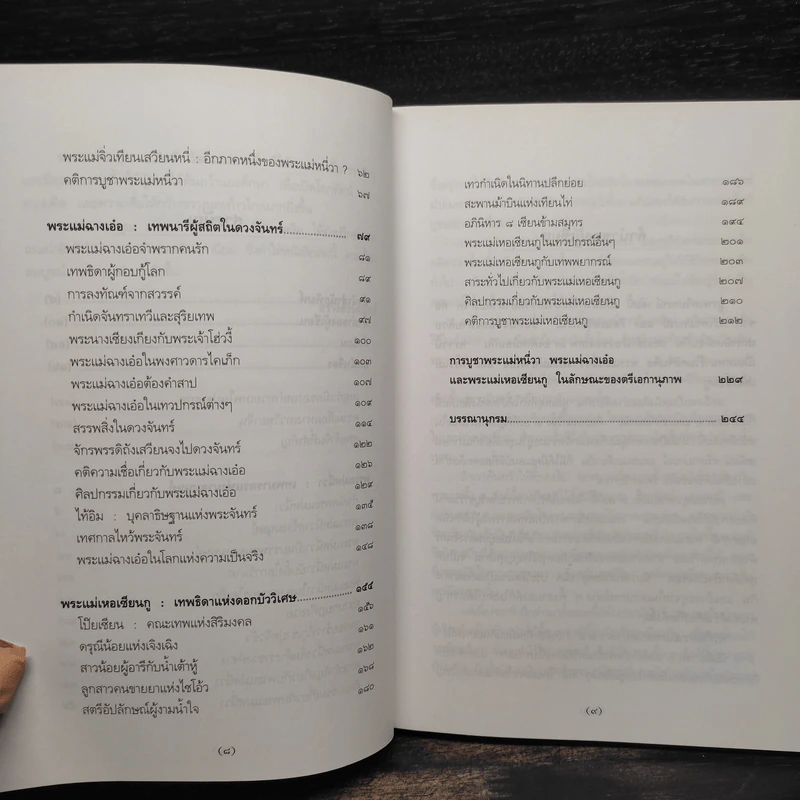 พระแม่จิ่วเทียนเสวียนหนี่ : อีกภาคหนึ่งของพระแม่หนี่วา ? ๖๒
คติการบูชาพระแม่หนี่วา ๖๗
พระแม่ฉางเอ๋อ : เทพนารีผู้สถิตในดวงจันทร์.................. ๗๙
พระแม่ฉางเอ๋อจำพรากคนรัก ๘๑
เทพธิดาผู้กอบกู้โลก ๘๔
การลงทัณฑ์จากสวรรค์ ๙๑
กำเนิดจันทราเทวีและสุริยเทพ ๙๗
พระนางเซียงเกียงกับพระเจ้าโฮ่วงี้ ๑๐๐
พระแม่ฉางเอ๋อในพงศาวดารไคเภ็ก ๑๐๓
พระแม่ฉางเอ๋อต้องคำสาป ๑๐๗
พระแม่ฉางเอ๋อในเทวปกรณ์ต่างๆ ๑๐๙
สรรพสิ่งในดวงจันทร์ ๑๑๔
จักรพรรดิถังเสวียนจงไปดวงจันทร์ ๑๒๒
คติความเชื่อเกี่ยวกับพระแม่ฉางเอ๋อ ๑๒๖
ศิลปกรรมเกี่ยวกับพระแม่ฉางเอ๋อ ๑๒๙
ไท้อิม : บุคลาธิษฐานแห่งพระจันทร์ ๑๓๕
เทศกาลไหว้พระจันทร์ ๑๓๘
พระแม่ฉางเอ๋อในโลกแห่งความเป็นจริง ๑๔๘
พระแม่เหอเซียนกู : เทพธิดาแห่งดอกบัววิเศษ............... ๑๕๔
โป๊ยเซียน : คณะเทพแห่งสิริมงคล ๑๕๖
ดรุณีน้อยแห่งเจิงเฉิง ๑๖๑
สาวน้อยผู้อารีกับน้ำเต้าหู้ ๑๖๒
ลูกสาวคนขายยาแห่งไซโอ้ว ๑๖๘
สตรีอัปลักษณ์ผู้งามน้ำใจ ๑๘๐
(๘)
เทวกำเนิดในนิทานปลีกย่อย ๑๘๖
สะพานม้าบินแห่งเทียนไท่ ๑๘๙
อภินิหาร ๘ เซียนข้ามสมุทร ๑๙๔
พระแม่เหอเซียนกูในเทวปกรณ์อื่นๆ ๒๐๑
พระแม่เหอเซียนกูกับเทพพยากรณ์ ๒๐๓
สาระทั่วไปเกี่ยวกับพระแม่เหอเซียนกู ๒๐๗
ศิลปกรรมเกี่ยวกับพระแม่เหอเซียนกู ๒๑๐
คติการบูชาพระแม่เหอเซียนกู ๒๑๒
การบูชาพระแม่หนี่วา พระแม่ฉางเอ๋อ
และพระแม่เหอเซียนกู ในลักษณะของตรีเอกานุภาพ ๒๒๙
บรรณานุกรม............................................................ ๒๔๔
(๙)